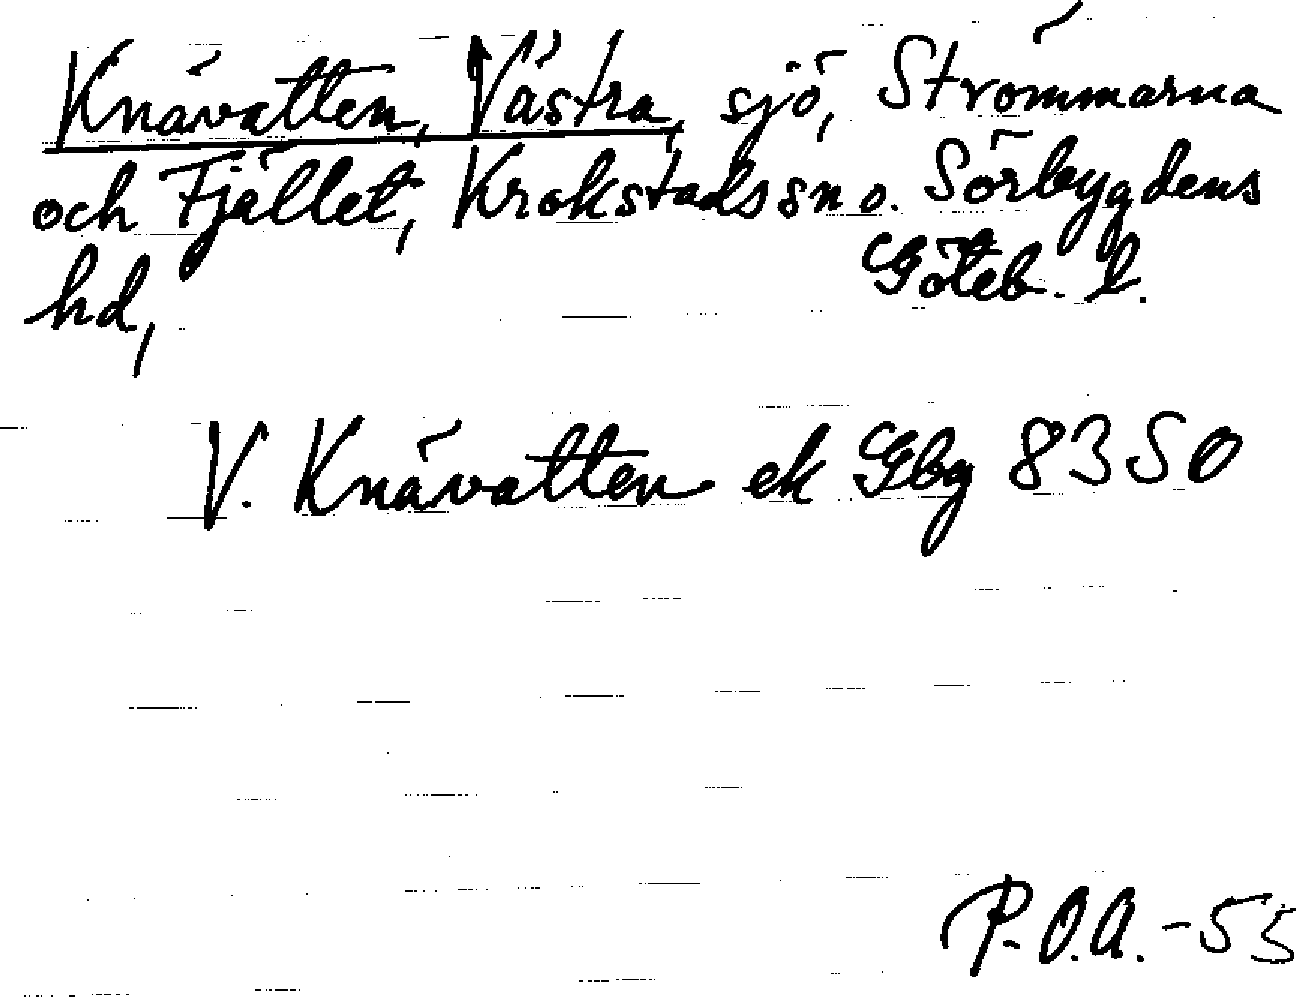 Knävatten, Västra, sjö, Strömmarna
och Fjället, Krokstads sn o. Sörbygdens
hd, Göteb. l.
V. Knävatten ek Gbg 8350
P.O.A. -55